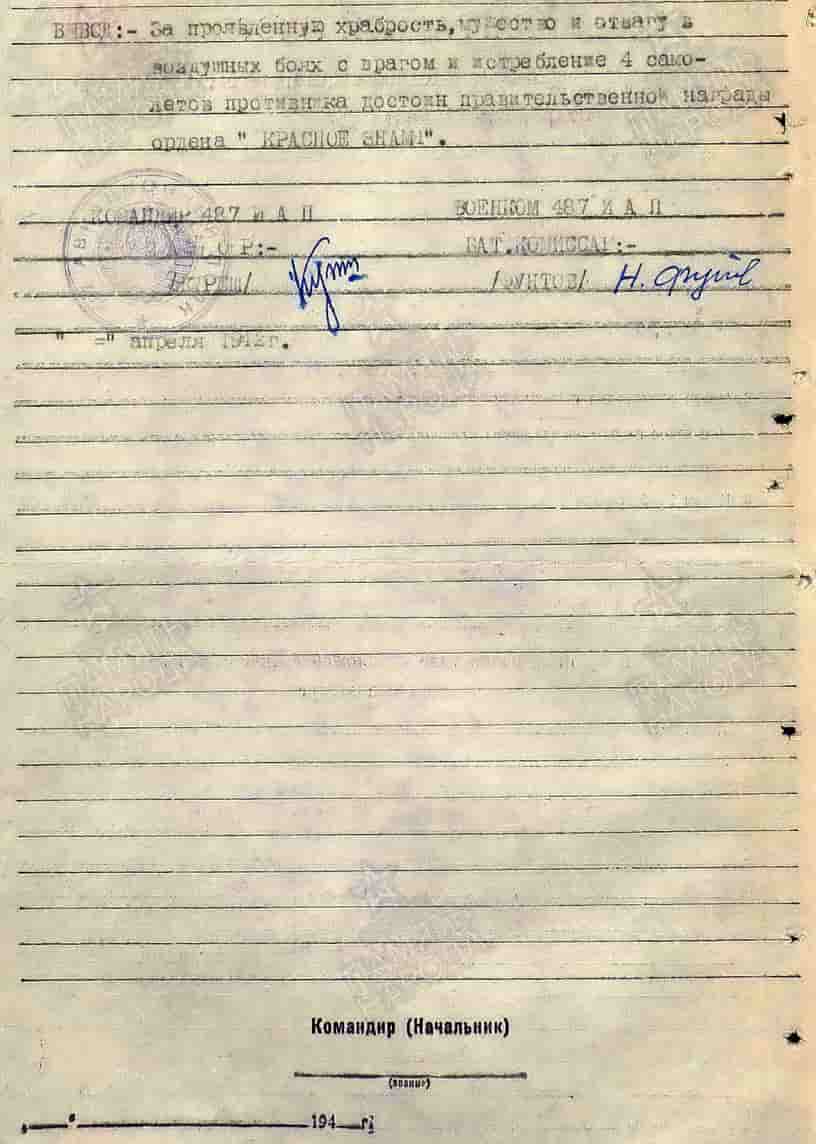 ВЫВОД:- За проявленную храбрость, мужество и отвагу в
воздушных боях с врагом и истребление 4 само-
летов противника достоин правительственной награды
ордена " КРАСНОЕ ЗНАМЯ".
КОМАНДИР 487 И А П
ВОЕНКОМ 487 И А П
БАТ.КОМИССАР:-
/ФУНТОВ/
" =" апреля 1942г.
ПАМЯТЬ НАРОДА
Командир (Начальник)
(звание)
" " 194 г.